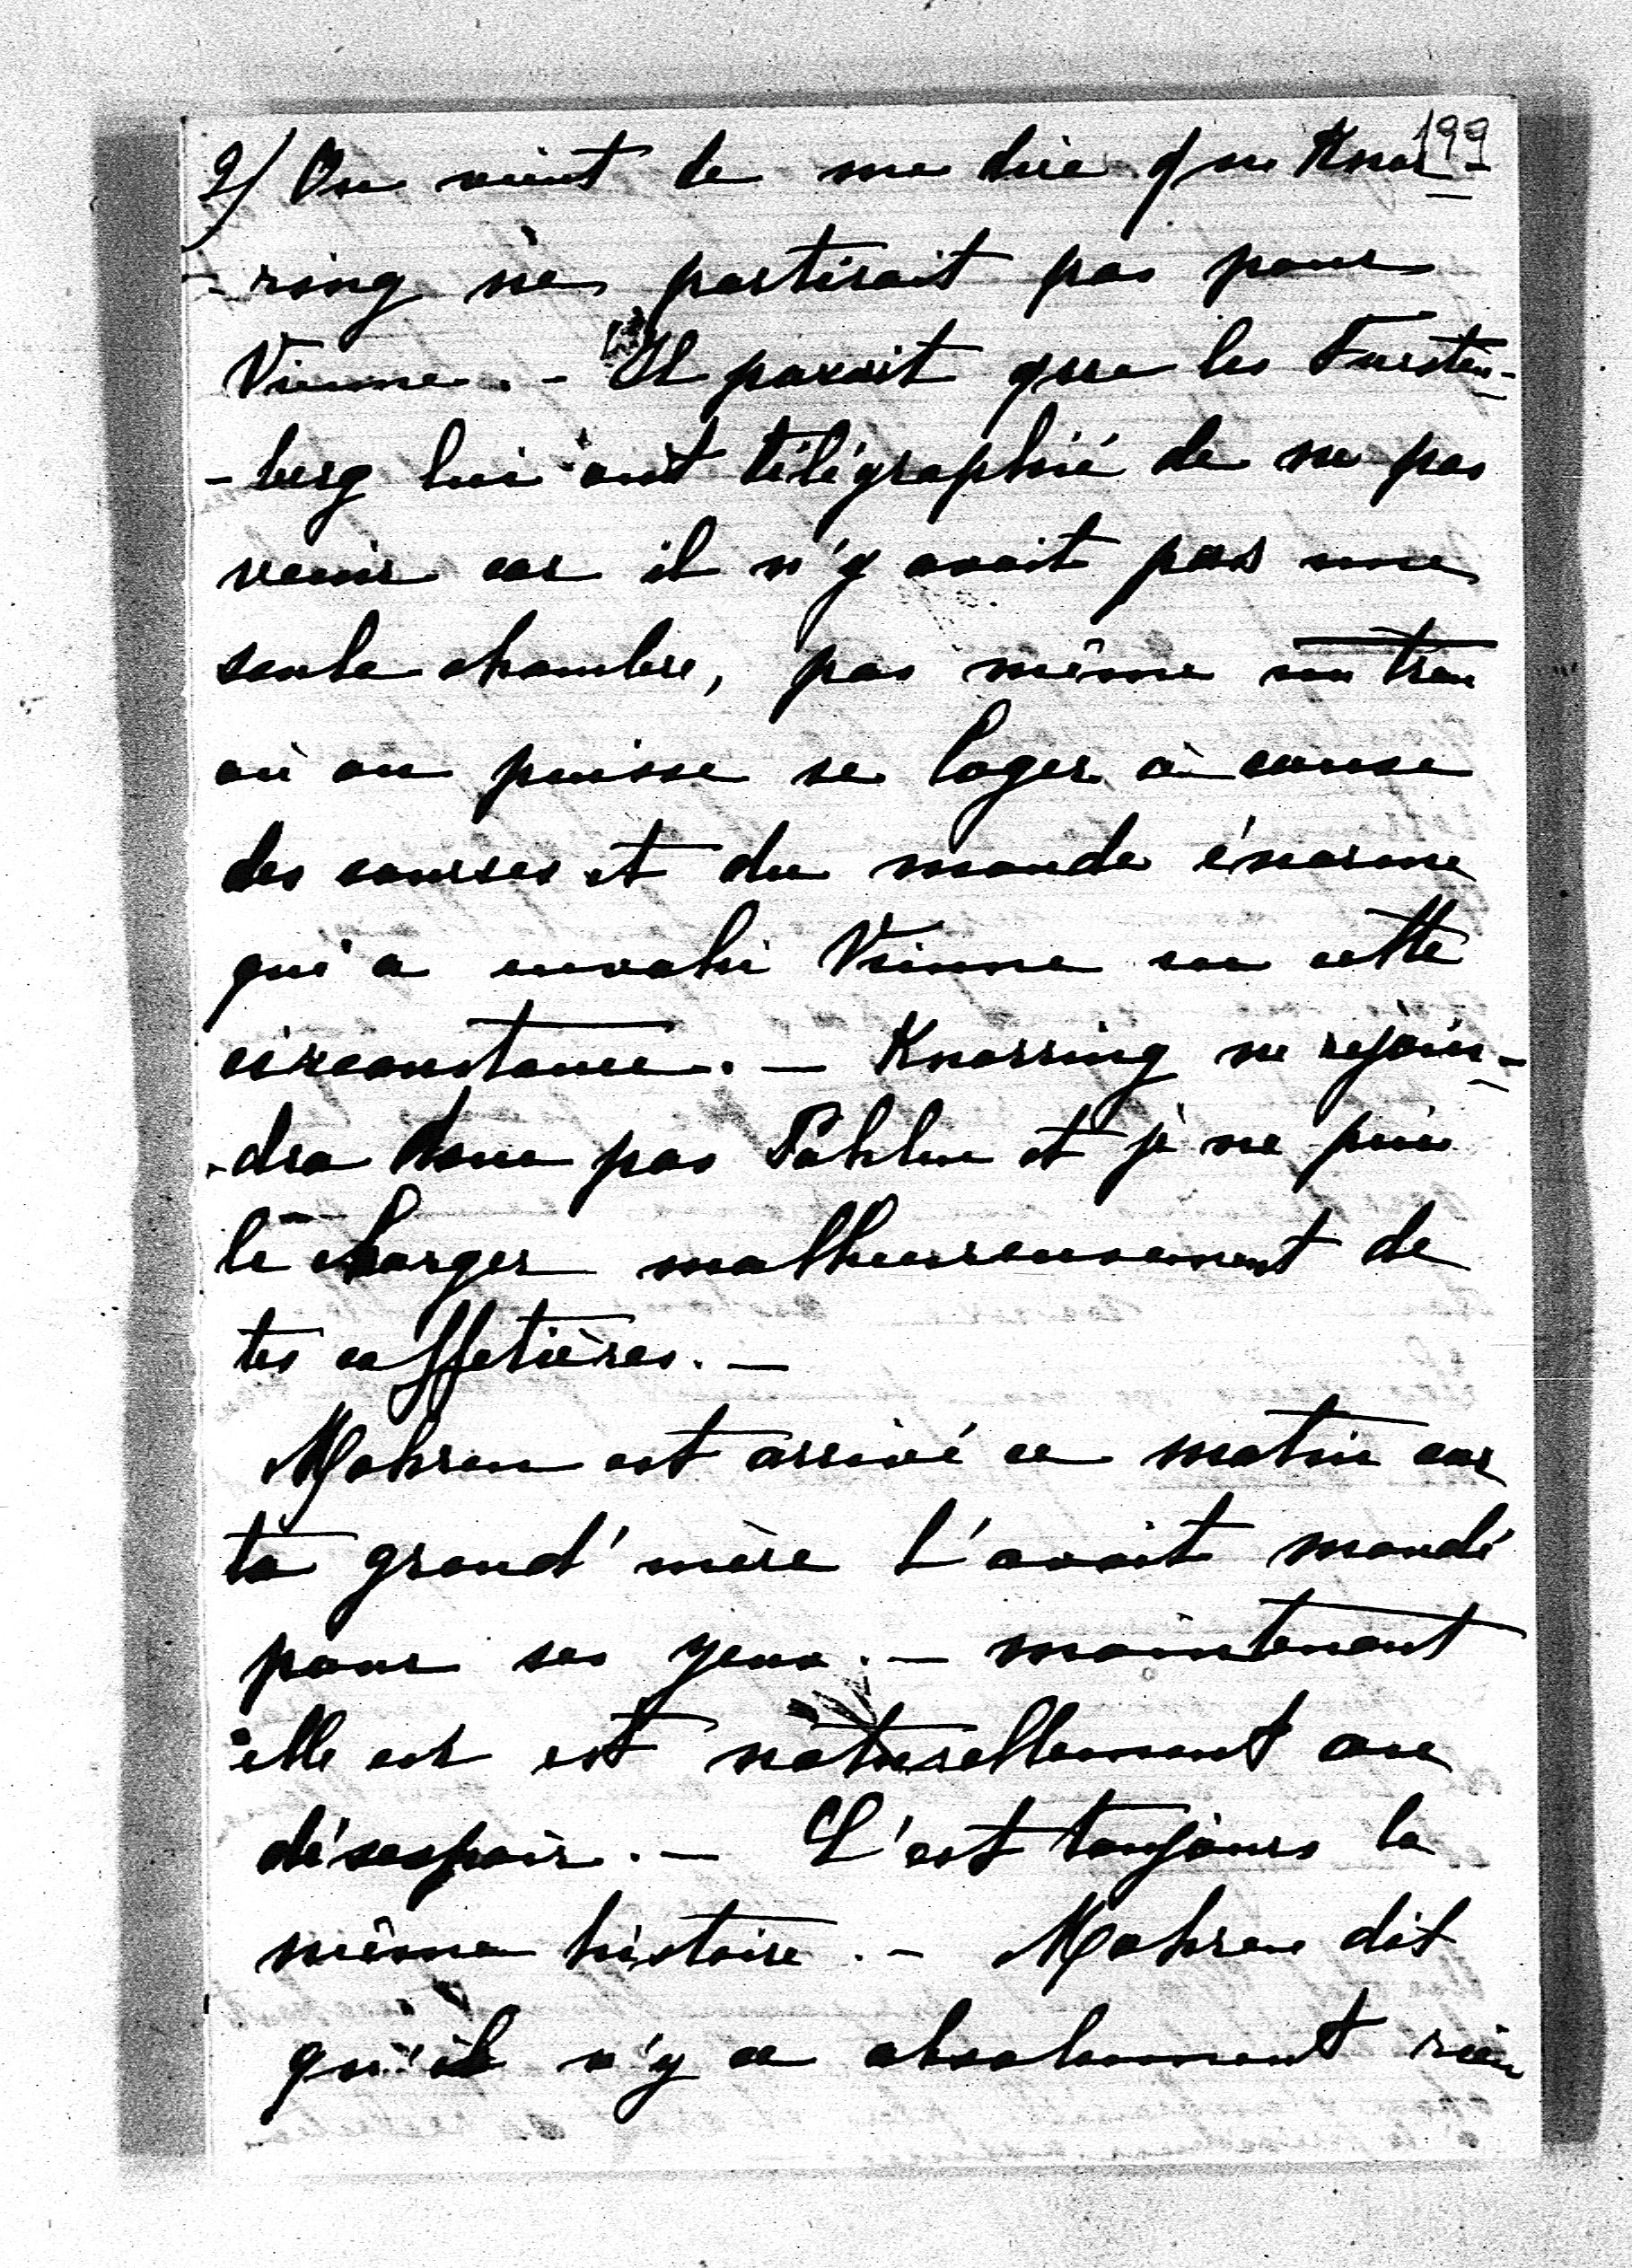 199
2/ On vient de me dire que Knor-
-ring ne partirait pas pour
Vienne. - Il parait que les Fursten-
-berg lui ont télégraphié de ne pas
venir car il n'y avait pas une
seule chambre, pas même un trou
où on puisse se loger à cause
des courses et du monde énorme
qui a envahi Vienne en cette
circonstance. — Knorring ne rejoin-
-dra donc pas Pahlen et je ne puis
le charger malheureusement de
tes caffetières. —
Mohren est arrivé ce matin car
ta grand'mère l'avait mandé
pour ses yeux. — maintenant
elle en est naturellement au
désespoir. — C'est toujours la
même histoire. - Mohren dit
qu'il n'y a absolument rien